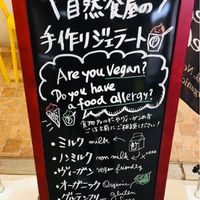 自然食屋の
手作りジェラート
Are you Vegan?
Do you have
a food allergy?
食物アレルギーやヴィーガンの方
ご注文前にご相談ください!
・ミルク milk
・ノンミルク non milk
・ヴィーガン vegan friendly
・オーガニック Organic
・グルテンフリー gluten